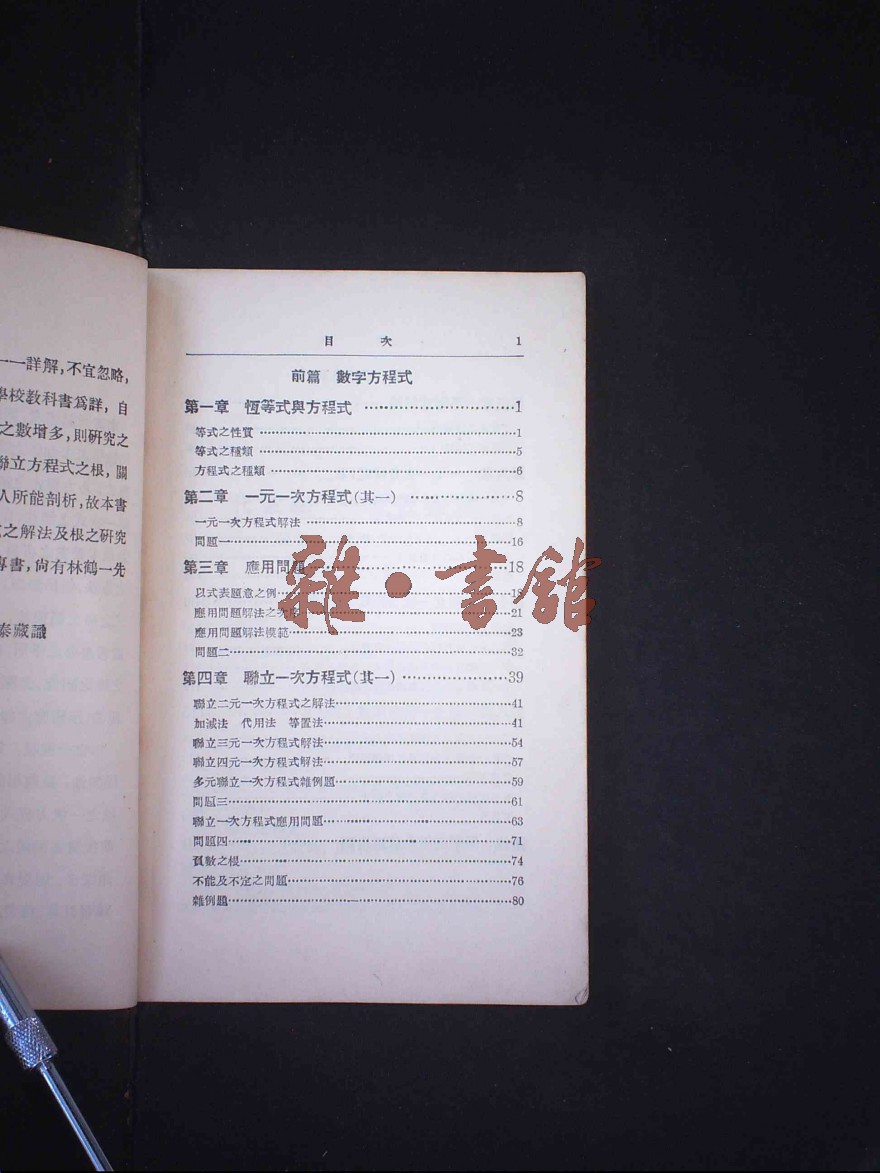 一一詳解,不宜忽略,
學校敎科書爲詳,自
之數增多,則硏究之
聯立方程式之根,關
人所能剖析,故本書
之解法及根之硏究
專書,尙有林鶴一先
泰藏識
目 次 1
前篇 數字方程式
第一章 恆等式與方程式 ……………………………1
等式之性質 ……………………………1
等式之種類 ……………………………5
方程式之種類 ……………………………6
第二章 一元一次方程式(其一) ……………………8
一元一次方程式解法 ……………………………8
問題一……………………………16
第三章 應用問題……………………………18
以式表題意之例……………………………18
應用問題解法之次序……………………………21
應用問題解法模範……………………………23
問題二……………………………32
第四章 聯立一次方程式(其一)……………………39
聯立二元一次方程式之解法……………………………41
加減法 代用法 等置法……………………………41
聯立三元一次方程式解法……………………………54
聯立四元一次方程式解法……………………………57
多元聯立一次方程式雜例題……………………………59
問題三……………………………61
聯立一次方程式應用問題……………………………63
問題四……………………………71
負數之根……………………………74
不能及不定之問題……………………………76
雜例題……………………………80
雜·書館